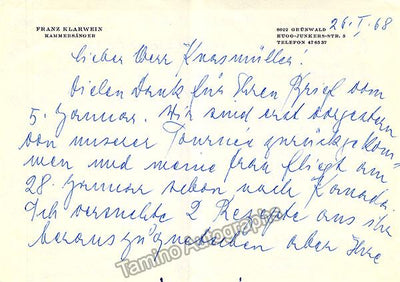 FRANZ KLARWEIN
KAMMERSÄNGER
8022 GRÜNWALD
HUGO-JUNKERS-STR. 3
TELEFON 476537
26. I. 68
Lieber Herr Knasmüller!
Vielen Dank für Ihren Brief vom
5. Januar. Wir sind erst vorgestern
von unserer Tournée zurückgekom-
men und meine Frau fliegt am
28. Januar schon nach Kanada.
Ich versuchte 2 Rezepte aus ihr
herauszuquetschen aber Ihre
Tamino Autographs